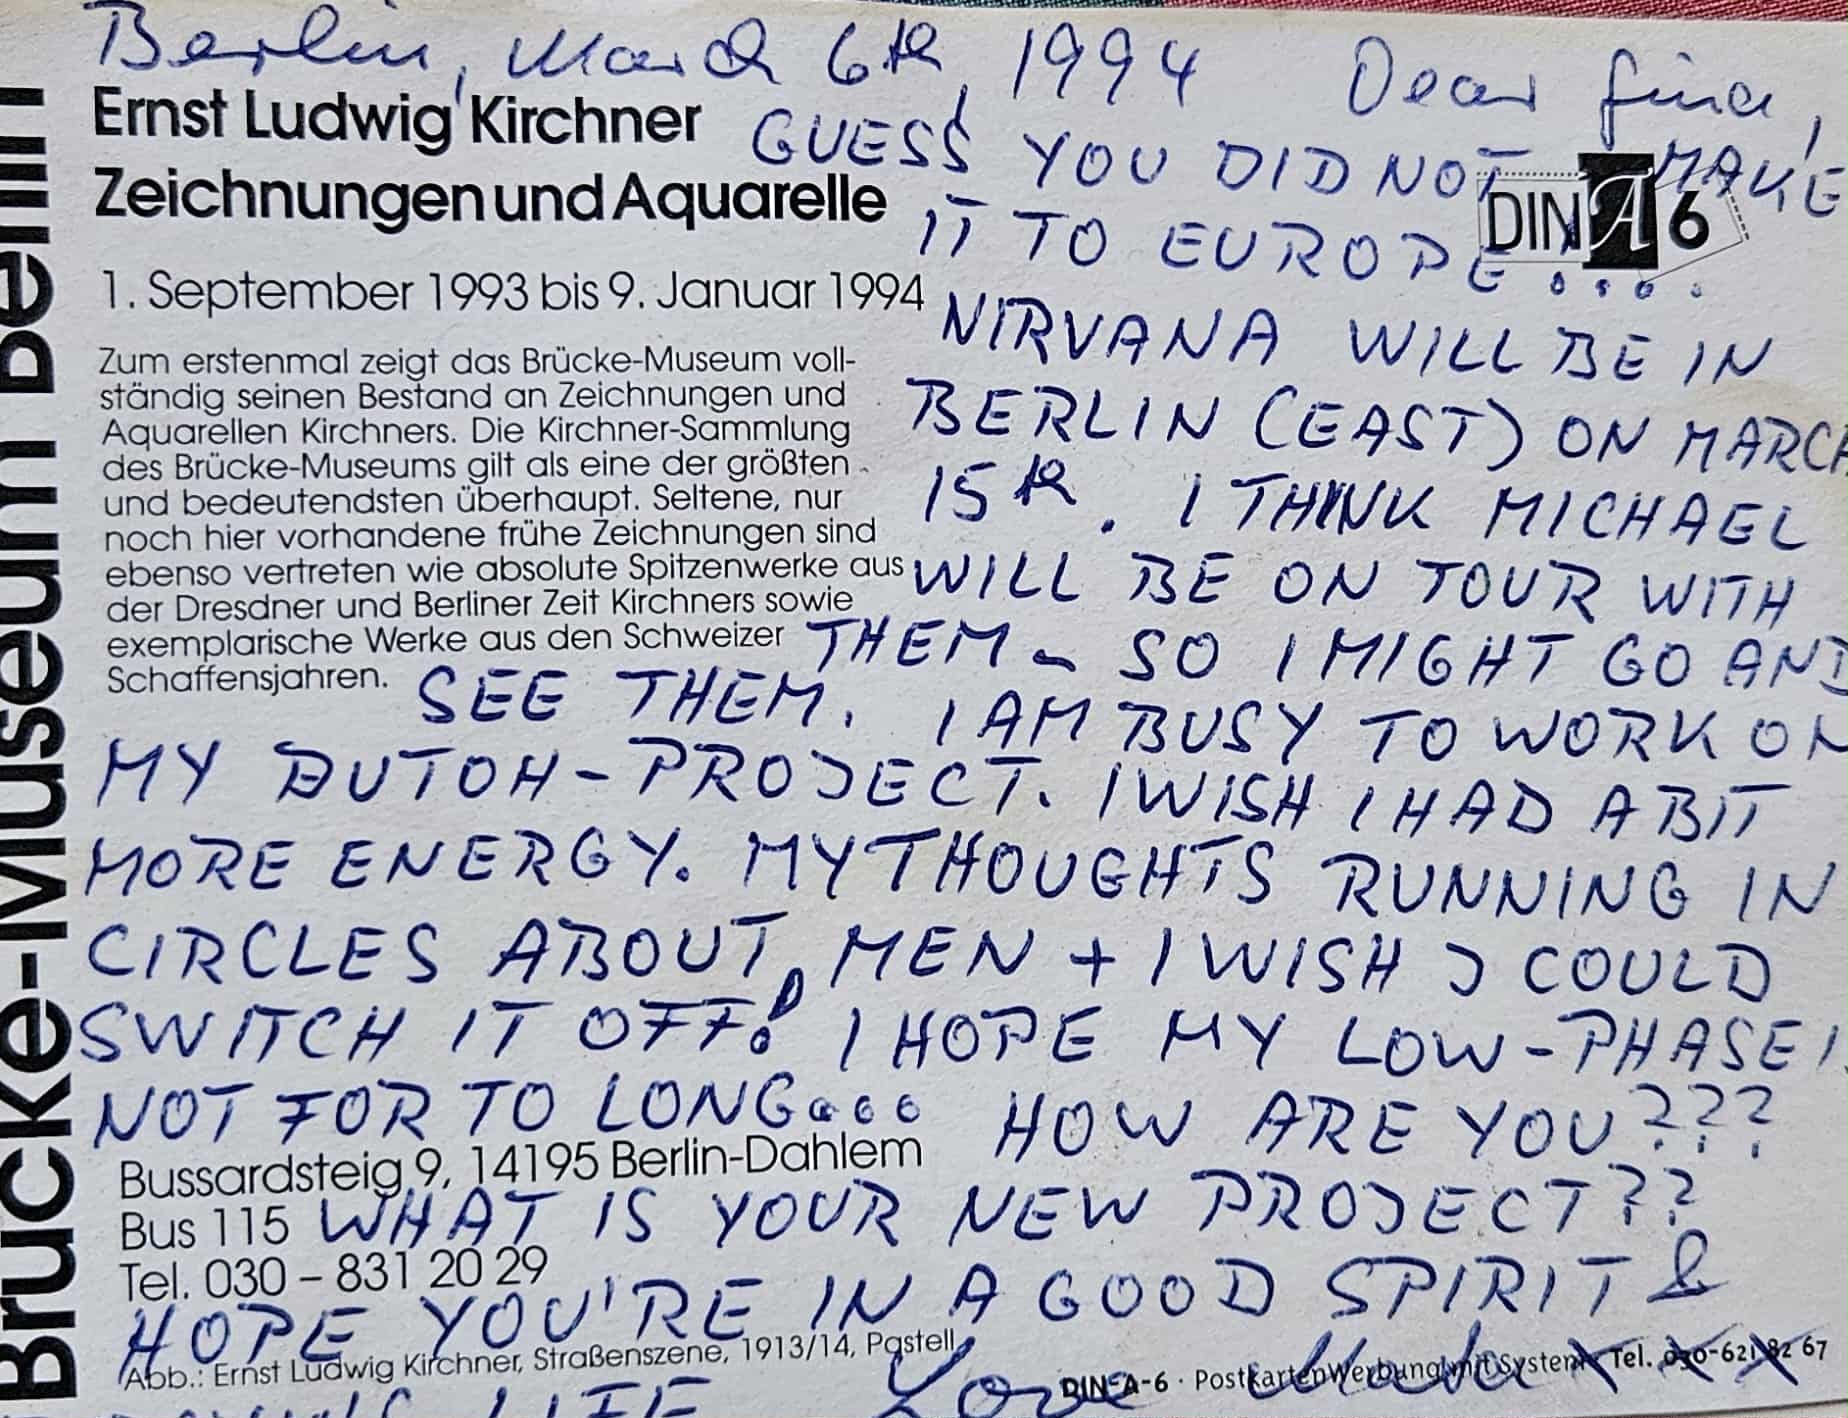 Berlin, March 6th, 1994 Dear Gina,
Ernst Ludwig Kirchner
Zeichnungen und Aquarelle
1. September 1993 bis 9. Januar 1994
Zum erstenmal zeigt das Brücke-Museum voll-
ständig seinen Bestand an Zeichnungen und
Aquarellen Kirchners. Die Kirchner-Sammlung
des Brücke-Museums gilt als eine der größten
und bedeutendsten überhaupt. Seltene, nur
noch hier vorhandene frühe Zeichnungen sind
ebenso vertreten wie absolute Spitzenwerke aus
der Dresdner und Berliner Zeit Kirchners sowie
exemplarische Werke aus den Schweizer
Schaffensjahren.
DIN A 6
GUESS YOU DID NOT MAKE
IT TO EUROPE....
NIRVANA WILL BE IN
BERLIN (EAST) ON MARCH
15th. I THINK MICHAEL
WILL BE ON TOUR WITH
THEM - SO I MIGHT GO AND
SEE THEM. I AM BUSY TO WORK ON
MY BUTOH-PROJECT. I WISH I HAD A BIT
MORE ENERGY. MY THOUGHTS RUNNING IN
CIRCLES ABOUT MEN + I WISH I COULD
SWITCH IT OFF! I HOPE MY LOW-PHASE IS
NOT FOR TO LONG... HOW ARE YOU???
WHAT IS YOUR NEW PROJECT??
HOPE YOU'RE IN A GOOD SPIRIT &
LIFE Love
Bussardsteig 9, 14195 Berlin-Dahlem
Bus 115
Tel. 030 – 831 20 29
Abb.: Ernst Ludwig Kirchner, Straßenszene, 1913/14, Pastell
DIN-A-6 · PostkartenWerbung mit System · Tel. 030-621 82 67
Brücke-Museum Berlin